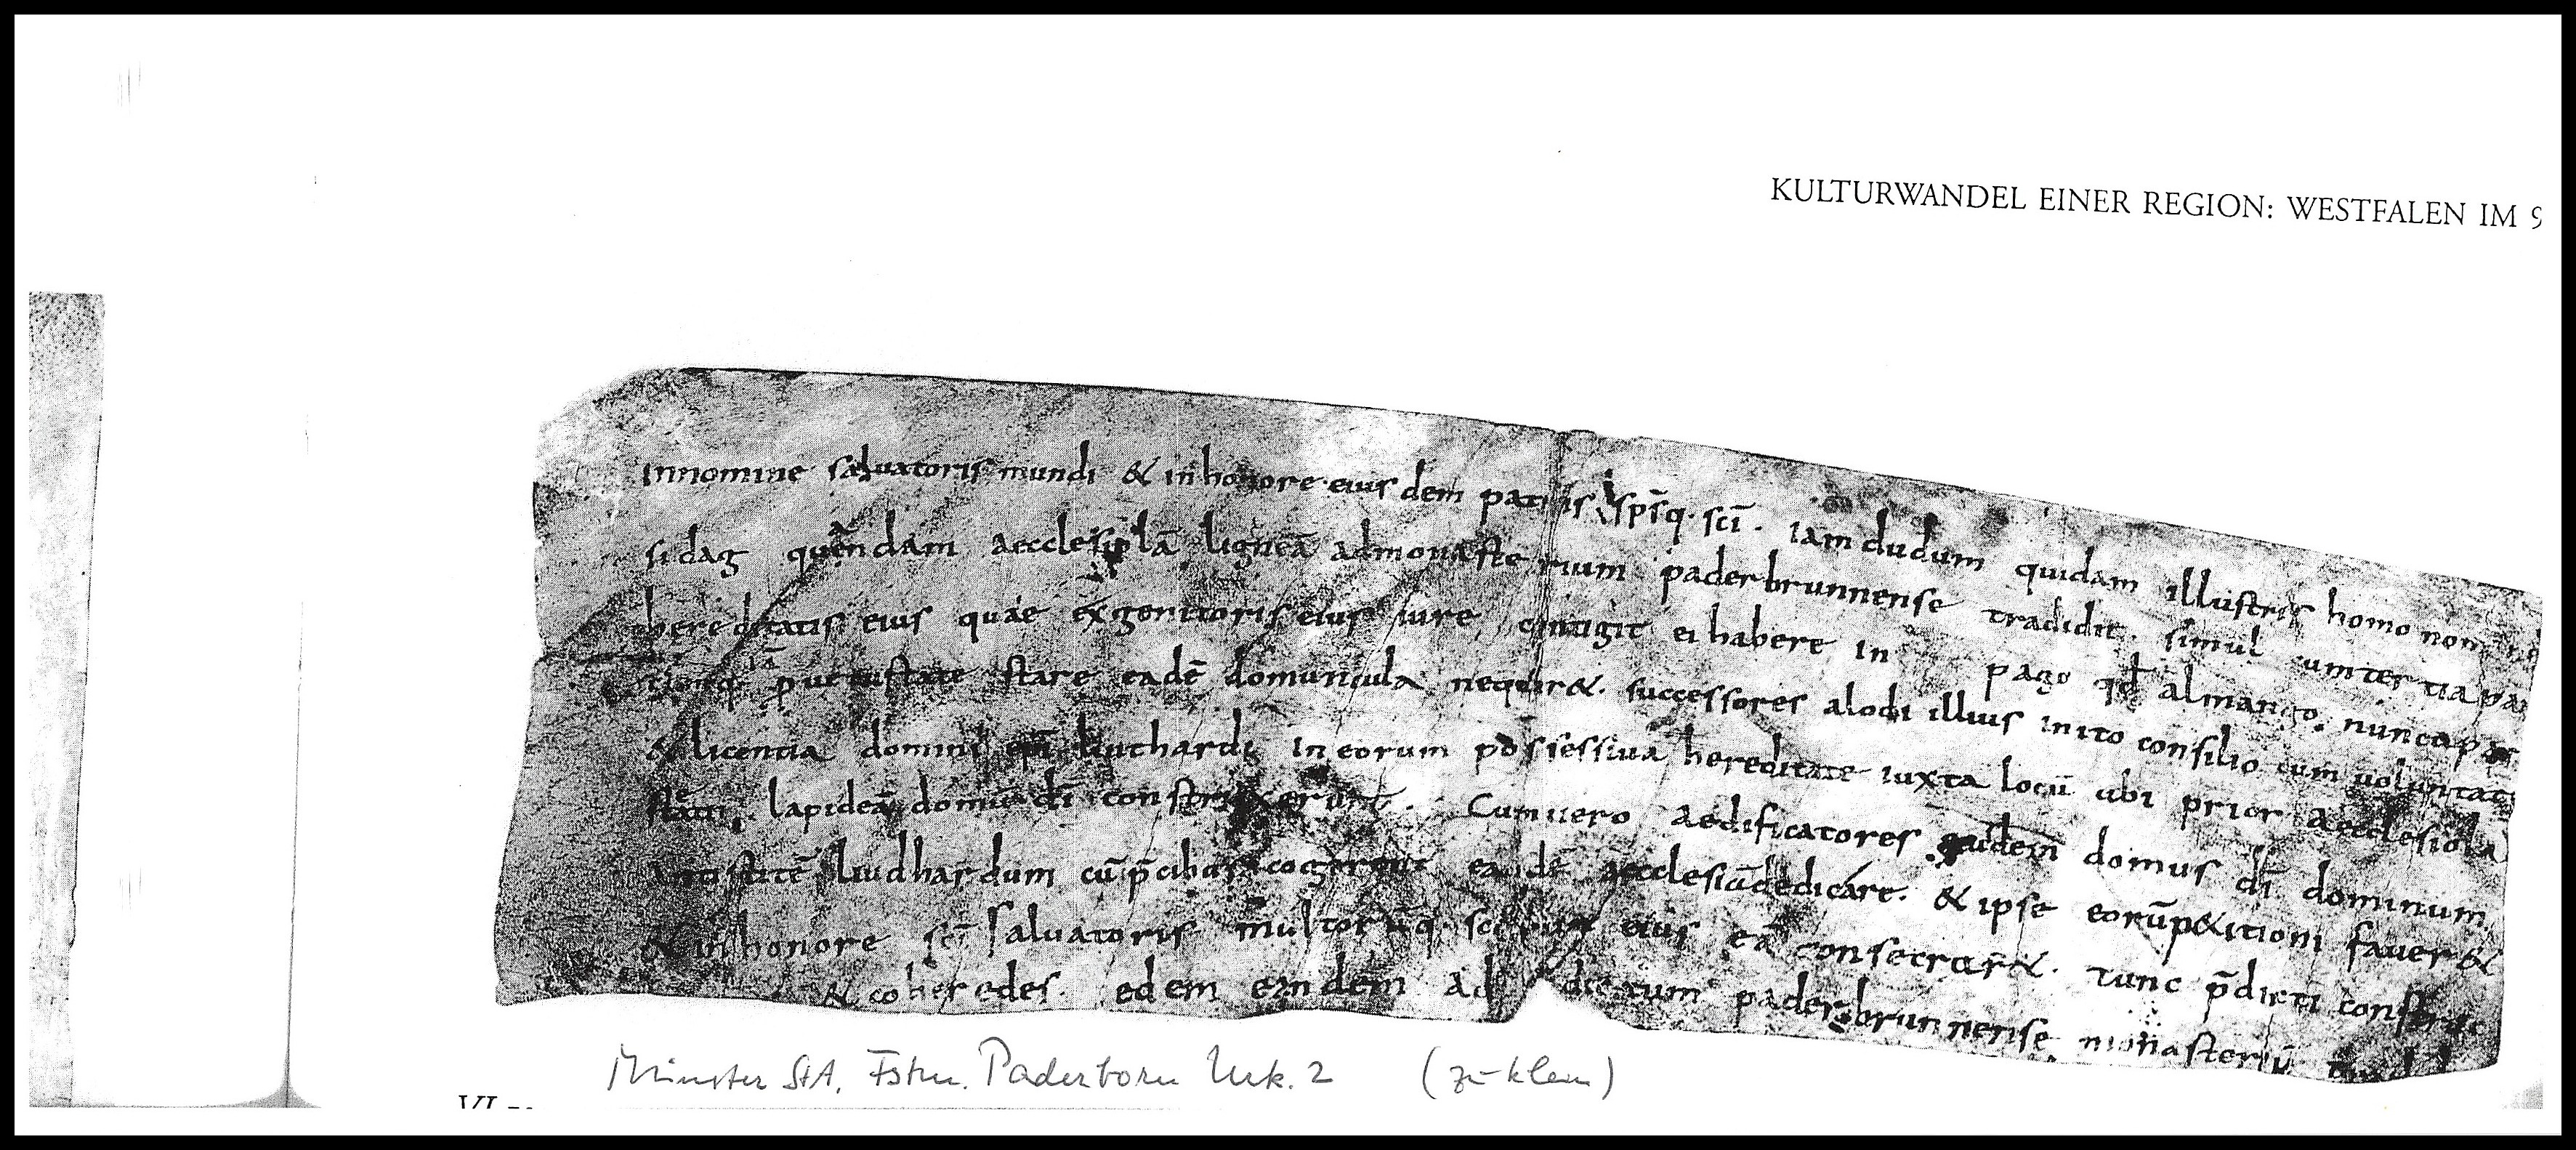 KULTURWANDEL EINER REGION: WESTFALEN IM 9
innomine saluatoris mundi & in honore eius dem patris sp̄sq· sc̄i · iam dudum quidam illustris homo nomine
sidag quendam aecclesiolā ligneā admonasterium paderbrunnense tradidit · simul cum tertia par
hereditatis eius quae exgenitoris eius iure contigit ei habere in pago qđ almango · nunc
iā p̄ uetustate stare eadē domuncula nequir& · successores alodi illius inito consilio cum uoluntate
& licentia domini ep̄i liuthardi in eorum possessiua hereditate iuxta locū ubi prior aecclesiola
lapideā domū dī construxerunt · Cum uero aedificatores eiusdem domus dī dominum
antistitē liudhardum cū p̄cibus cogerent eandē aecclesiā dedicare · & ipse eorū p&itioni fauer&
& in honore sc̄i saluatoris multorūq· sc̄orum eius eā consecrar& · tunc p̄dicti construc
& coheredes · edem eandem ad dictum paderbrunnense monasteriū
Münster StA, Fstm. Paderborn Urk. 2 (zu klein)
VI